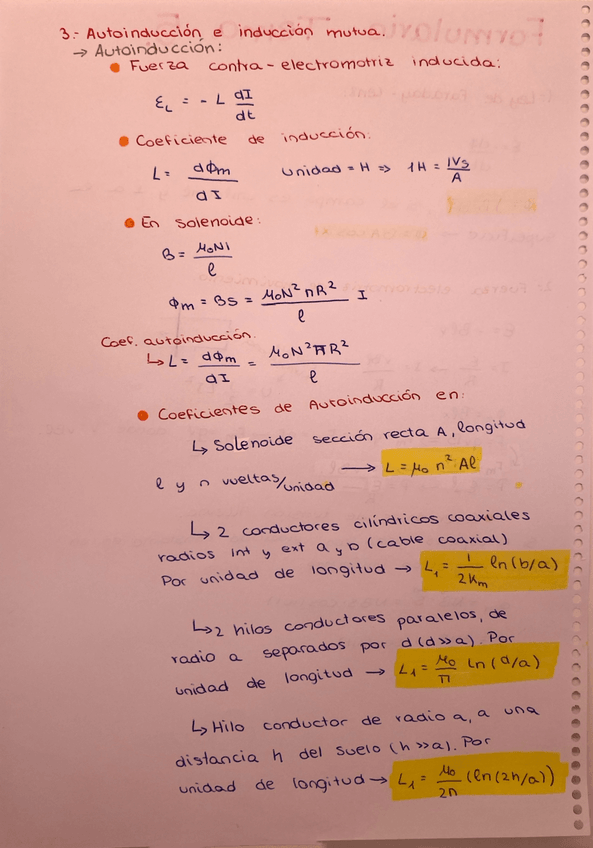 3.- Autoinducción e inducción mutua.
→ Autoinducción:
• Fuerza contra-electromotriz inducida:
ε_L = - L dI/dt
• Coeficiente de inducción:
L = dϕm/dI unidad = H => 1H = 1Vs/A
• En solenoide:
B = μ₀NI/ℓ
ϕm = BS = μ₀N²πR²/ℓ I
Coef. autoinducción.
↳ L = dϕm/dI = μ₀N²πR²/ℓ
• Coeficientes de Autoinducción en:
↳ Solenoide sección recta A, longitud
ℓ y n vueltas/unidad → L = μ₀ n² Aℓ
↳ 2 conductores cilíndricos coaxiales
radios int y ext a y b (cable coaxial)
Por unidad de longitud → L₁ = 1/2Km ln(b/a)
↳ 2 hilos conductores paralelos, de
radio a separados por d (d>>a). Por
unidad de longitud → L₁ = μ₀/π ln(d/a)
↳ Hilo conductor de radio a, a una
distancia h del suelo (h>>a). Por
unidad de longitud → L₁ = μ₀/2π (ln(2h/a))